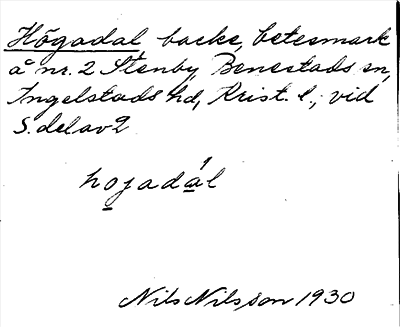 Högadal, backe, betesmark
å nr. 2 Stenby, Benestads sn,
Ingelstads hd, Krist. l.; vid
S. del av 2
hojadál
Nils Nilsson 1930